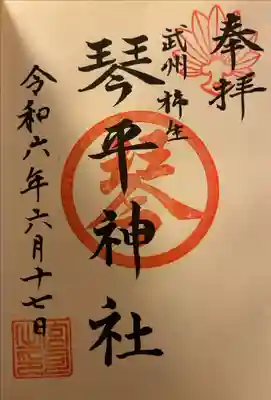 奉拝
武州柿生
琴平神社
令和六年六月十七日
金